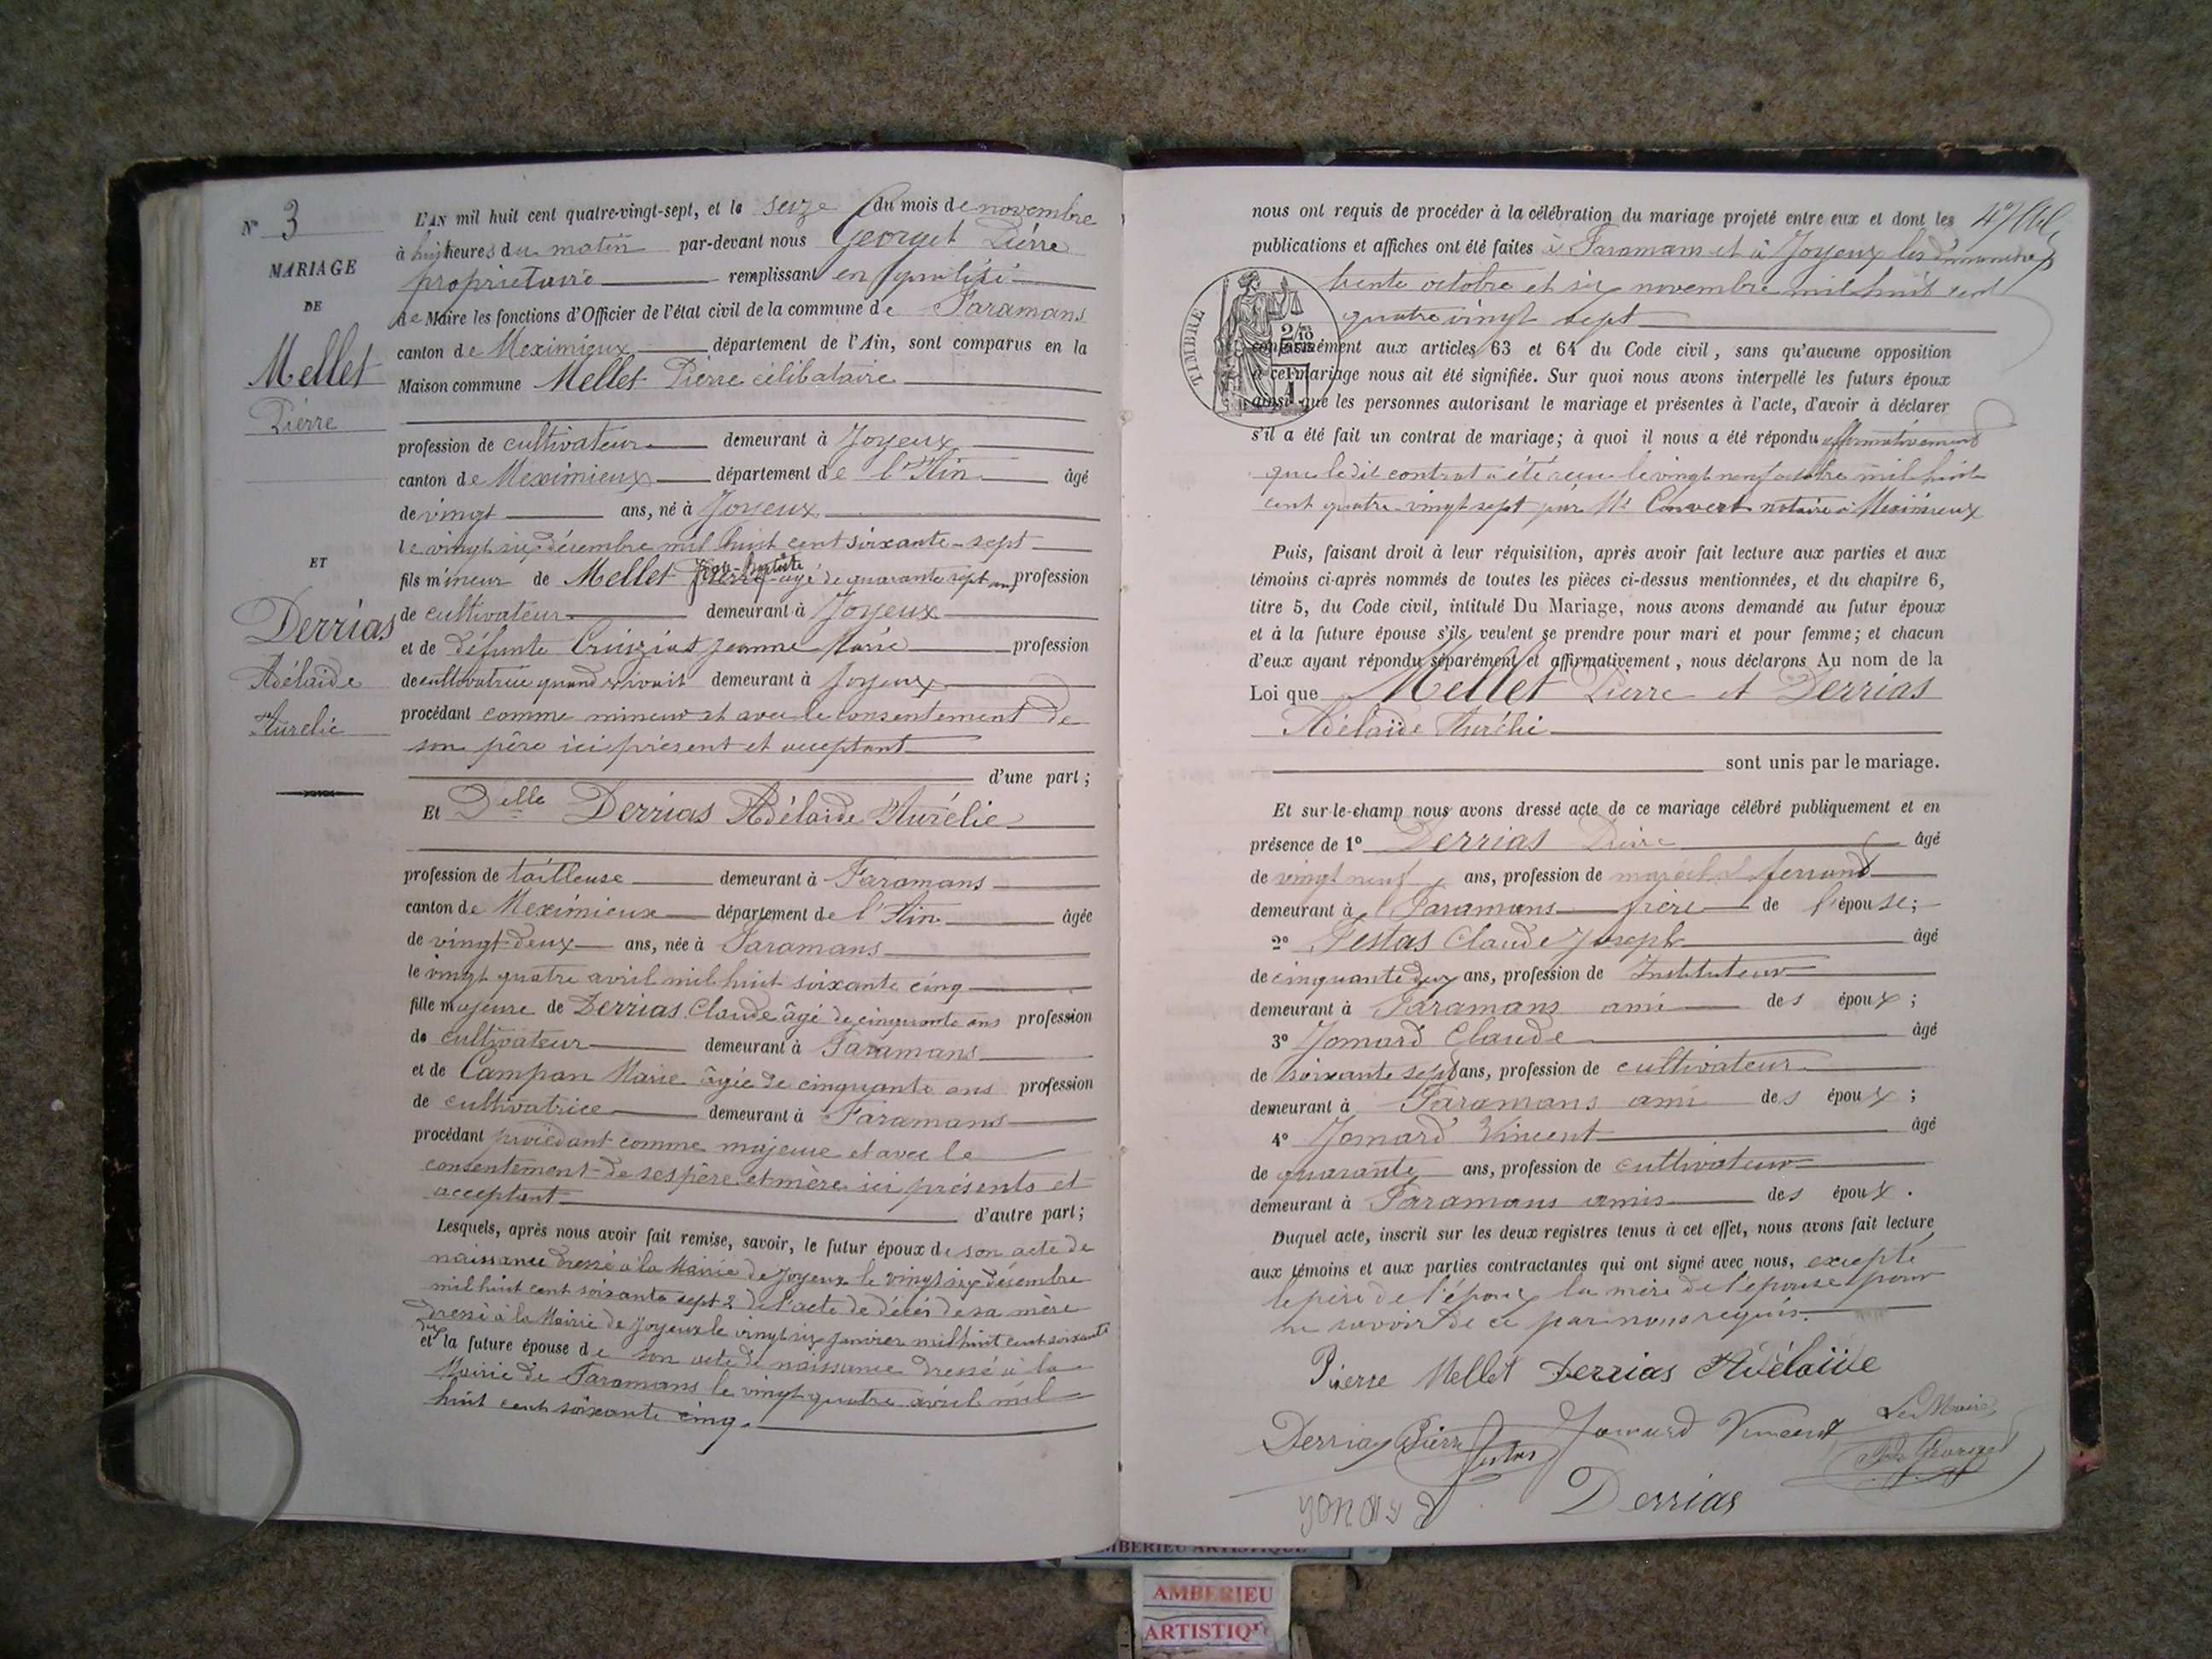 N° 3
MARIAGE
DE
Mellet
Pierre
ET
Derrias
Adélaide
Aurelie
L'AN mil huit cent quatre-vingt-sept, et le seize du mois de novembre
à huit heures du matin par-devant nous Georget Pierre
propriétaire remplissant en qualité
de Maire les fonctions d'Officier de l'état civil de la commune de Faramans
canton de Meximieux département de l'Ain, sont comparus en la
Maison commune Mellet Pierre célibataire
profession de cultivateur demeurant à Joyeux
canton de Meximieux département de l'Ain âgé
de vingt ans, né à Joyeux
le vingt six décembre mil huit cent soixante-sept
fils mineur de Mellet Jean-Baptiste âgé de quarante sept ans profession
de cultivateur demeurant à Joyeux
et de défunte Cruiziat Jeanne Marie profession
de cultivatrice quand vivait demeurant à Joyeux
procédant comme mineur et avec le consentement de
son père ici présent et acceptant
d'une part ;
Et Delle Derrias Adélaide Aurélie
profession de tailleuse demeurant à Faramans
canton de Meximieux département de l'Ain âgée
de vingt-deux ans, née à Faramans
le vingt quatre avril mil huit soixante cinq
fille majeure de Derrias Claude âgé de cinquante ans profession
de cultivateur demeurant à Faramans
et de Campan Marie âgée de cinquante ans profession
de cultivatrice demeurant à Faramans
procédant procédant comme majeure et avec le
consentement de ses père et mère ici présents et
acceptant d'autre part ;
Lesquels, après nous avoir fait remise, savoir, le futur époux de son acte de
naissance dressé à la Mairie de Joyeux le vingt six décembre
mil huit cent soixante sept & de l'acte de décès de sa mère
dressé à la Mairie de Joyeux le vingt six janvier mil huit cent soixante
dix
et la future épouse de son acte de naissance dressé à la
Mairie de Faramans le vingt quatre avril mil
huit cent soixante cinq.
nous ont requis de procéder à la célébration du mariage projeté entre eux et dont les
publications et affiches ont été faites à Faramans et à Joyeux les dimanches
trente octobre et six novembre mil huit cent
quatre vingt sept
TIMBRE
conformément aux articles 63 et 64 du Code civil, sans qu'aucune opposition
à ce mariage nous ait été signifiée. Sur quoi nous avons interpellé les futurs époux
ainsi que les personnes autorisant le mariage et présentes à l'acte, d'avoir à déclarer
s'il a été fait un contrat de mariage; à quoi il nous a été répondu affirmativement
que le dit contrat a été reçu le vingt neuf octobre mil huit
cent quatre-vingt sept par Me Convert notaire à Meximieux
Puis, faisant droit à leur réquisition, après avoir fait lecture aux parties et aux
témoins ci-après nommés de toutes les pièces ci-dessus mentionnées, et du chapitre 6,
titre 5, du Code civil, intitulé Du Mariage, nous avons demandé au futur époux
et à la future épouse s'ils veulent se prendre pour mari et pour femme; et chacun
d'eux ayant répondu séparément et affirmativement, nous déclarons Au nom de la
Loi que Mellet Pierre et Derrias
Adélaïde Aurélie
sont unis par le mariage.
Et sur-le-champ nous avons dressé acte de ce mariage célébré publiquement et en
présence de 1° Derrias Pierre âgé
de vingt neuf ans, profession de maréchal ferrand
demeurant à Faramans frère de l'épouse;
2° Festas Claude Joseph âgé
de cinquante deux ans, profession de Instituteur
demeurant à Faramans ami des époux ;
3° Jomard Claude âgé
de soixante sept ans, profession de cultivateur
demeurant à Faramans ami des époux ;
4° Jomard Vincent âgé
de quarante ans, profession de cultivateur
demeurant à Faramans amis des époux.
Duquel acte, inscrit sur les deux registres tenus à cet effet, nous avons fait lecture
aux témoins et aux parties contractantes qui ont signé avec nous, excepté
le père de l'époux la mère de l'épouse pour
ne savoir de ce par nous requis.
Pierre Mellet Derrias Adélaiide
Derrias Pierre Festas Jomard Vincent Le Maire
Georget
Jomard Derrias
AMBERIEU ARTISTIQUE
AMBERIEU
ARTISTIQU